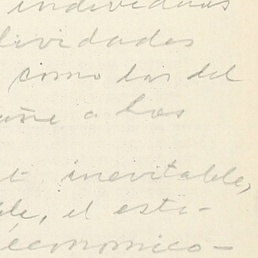 individuos
lividades
como las del
a los
inevitable,
ble, el esta-
económico-